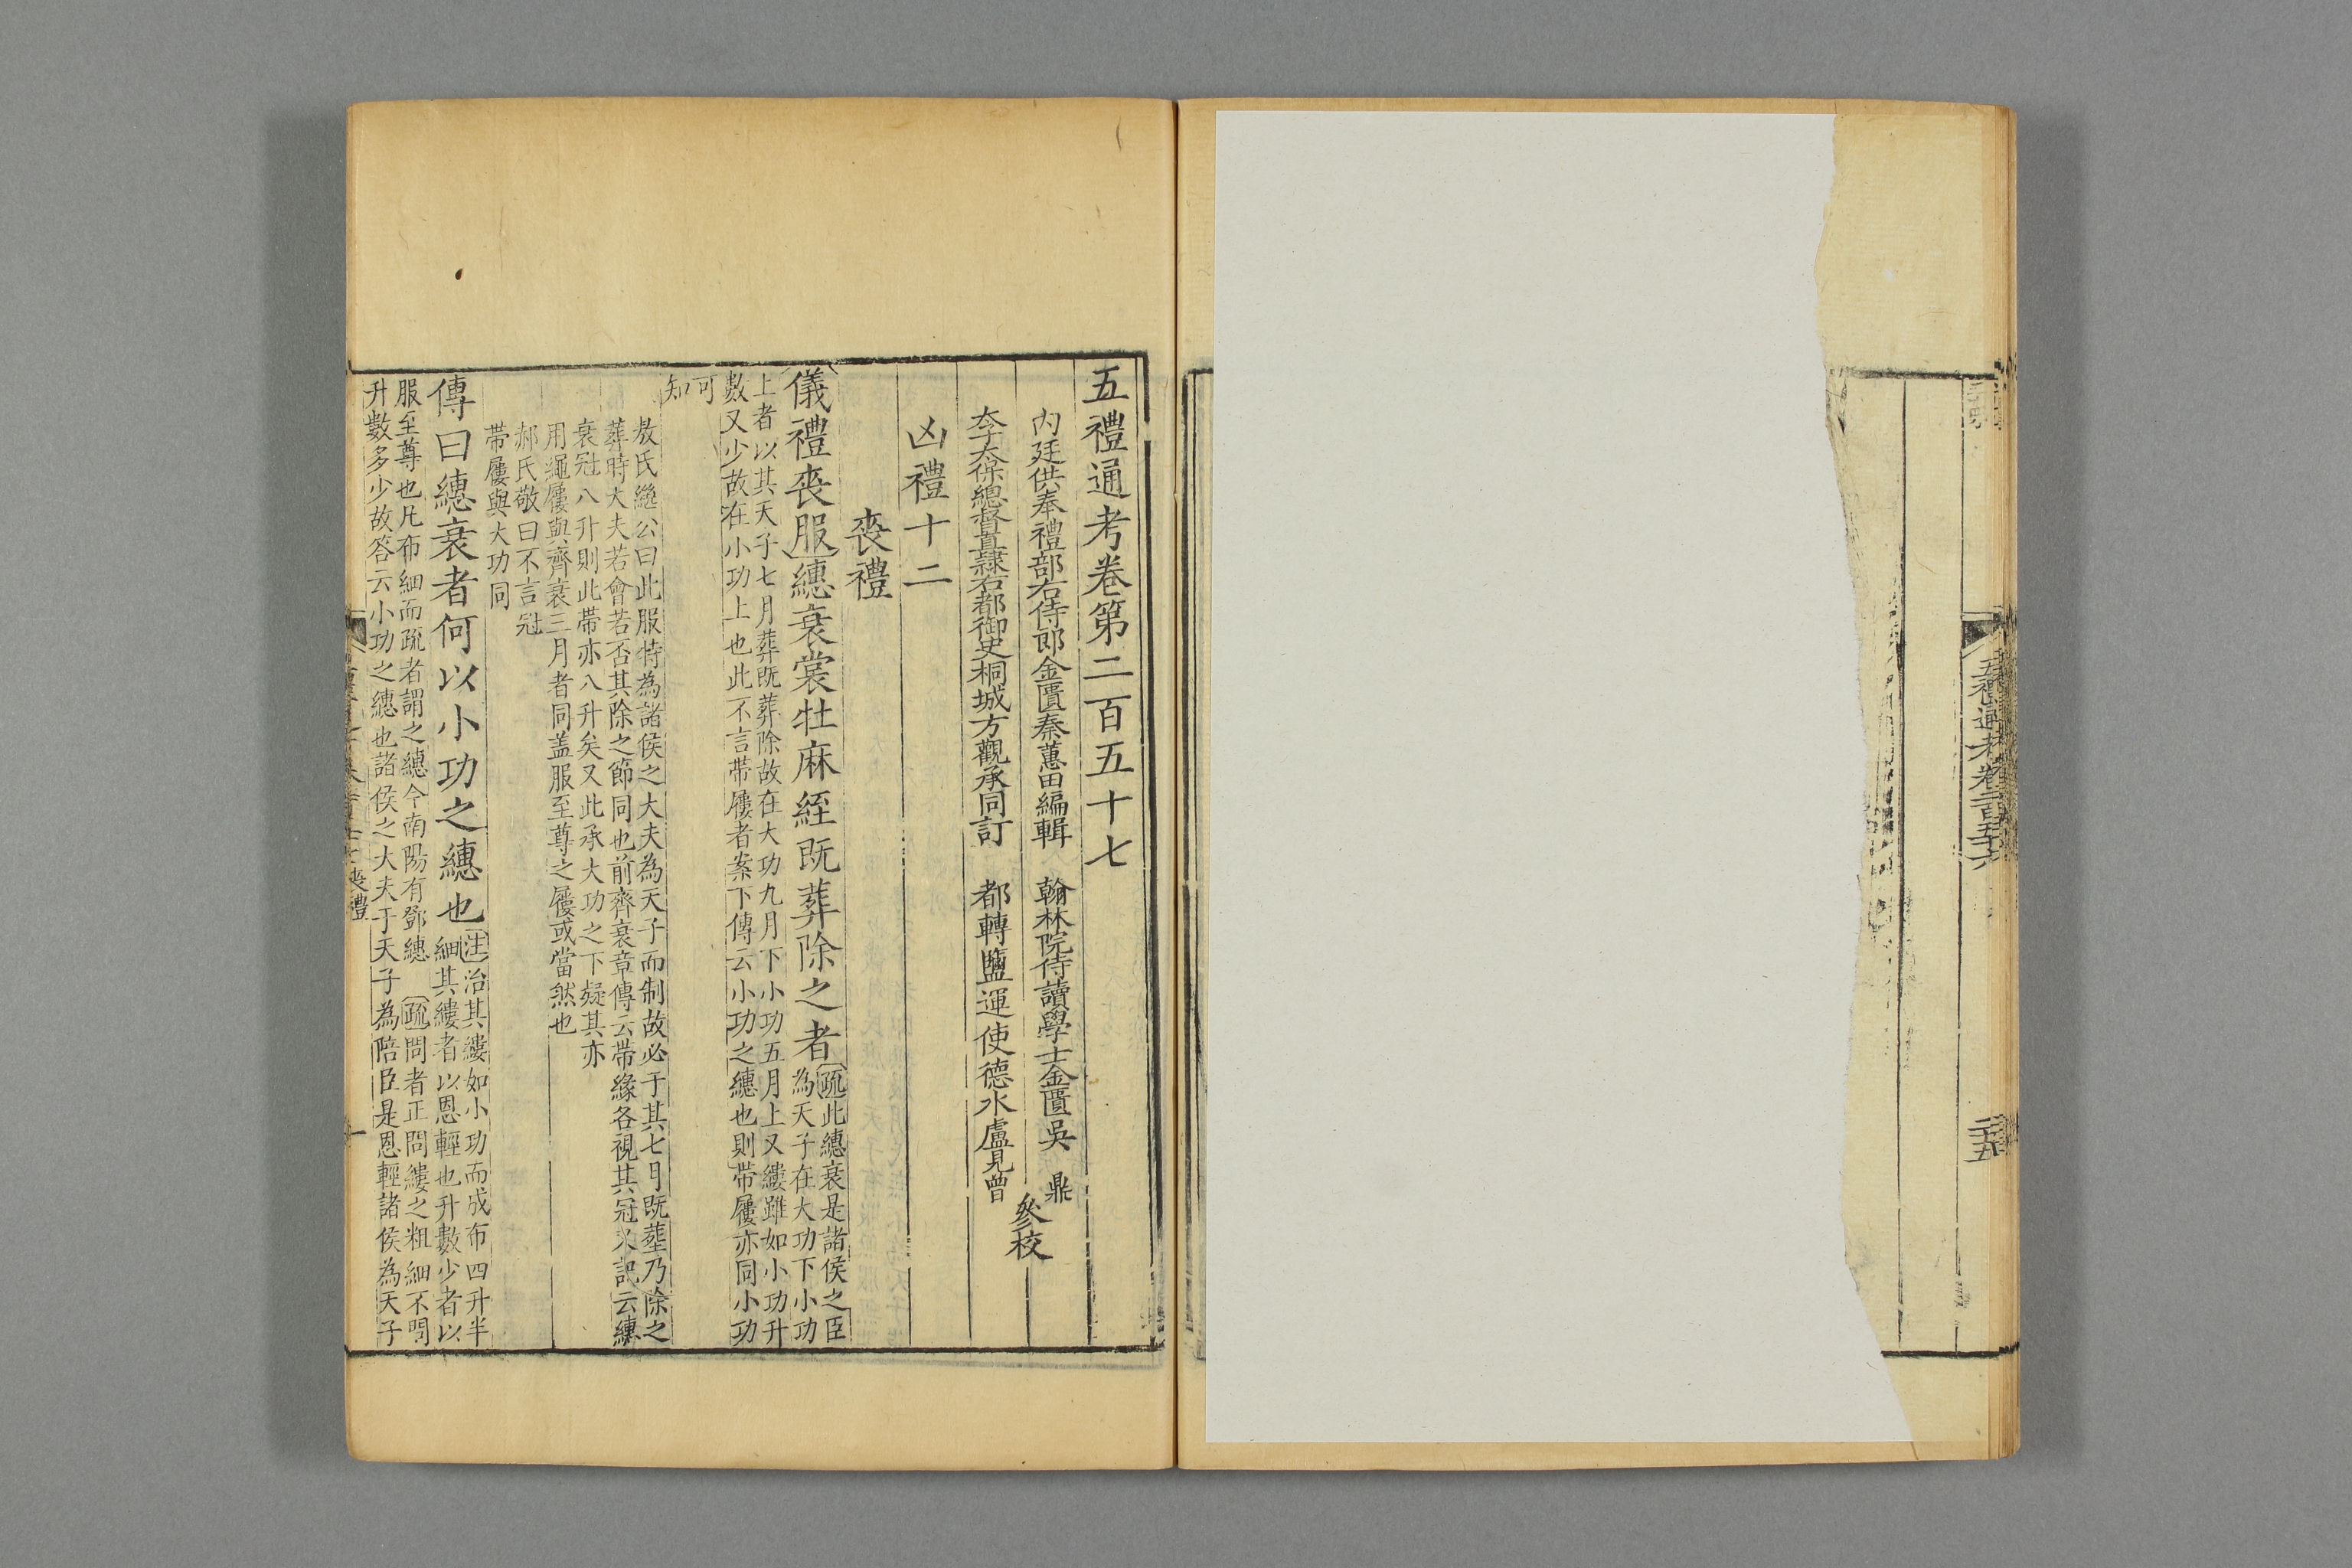 五禮通考卷二百五十六
二十五
五禮通考卷第二百五十七
內廷供奉禮部右侍郎金匱秦蕙田編輯　翰林院侍讀學士金匱吳　鼎
太子太保總督直隸右都御史桐城方觀承同訂　都轉鹽運使德水盧見曾
參校
凶禮十二
喪禮
儀禮喪服繐衰裳牡麻絰既葬除之者
疏此繐衰是諸侯之臣
為天子在大功下小功
上者以其天子七月葬既葬除故在大功九月下小功五月上又縷雖如小功升
數又少故在小功上也此不言帶屨者案下傳云小功之繐也則帶屨亦同小功
可
知
敖氏繼公曰此服特為諸侯之大夫為天子而制故必于其七月既葬乃除之
葬時大夫若會若否其除之節同也前齊衰章傳云帶緣各視其冠又記云繐
衰冠八升則此帶亦八升矣又此承大功之下疑其亦
用繩屨與齊衰三月者同蓋服至尊之屨或當然也
郝氏敬曰不言冠
帶屨與大功同
傳曰繐衰者何以小功之繐也
注治其縷如小功而成布四升半
細其縷者以恩輕也升數少者以
服至尊也凡布細而疏者謂之繐今南陽有鄧繐　疏問者正問縷之粗細不問
升數多少故答云小功之繐也諸侯之大夫于天子為陪臣是恩輕諸侯為天子
喪禮
一